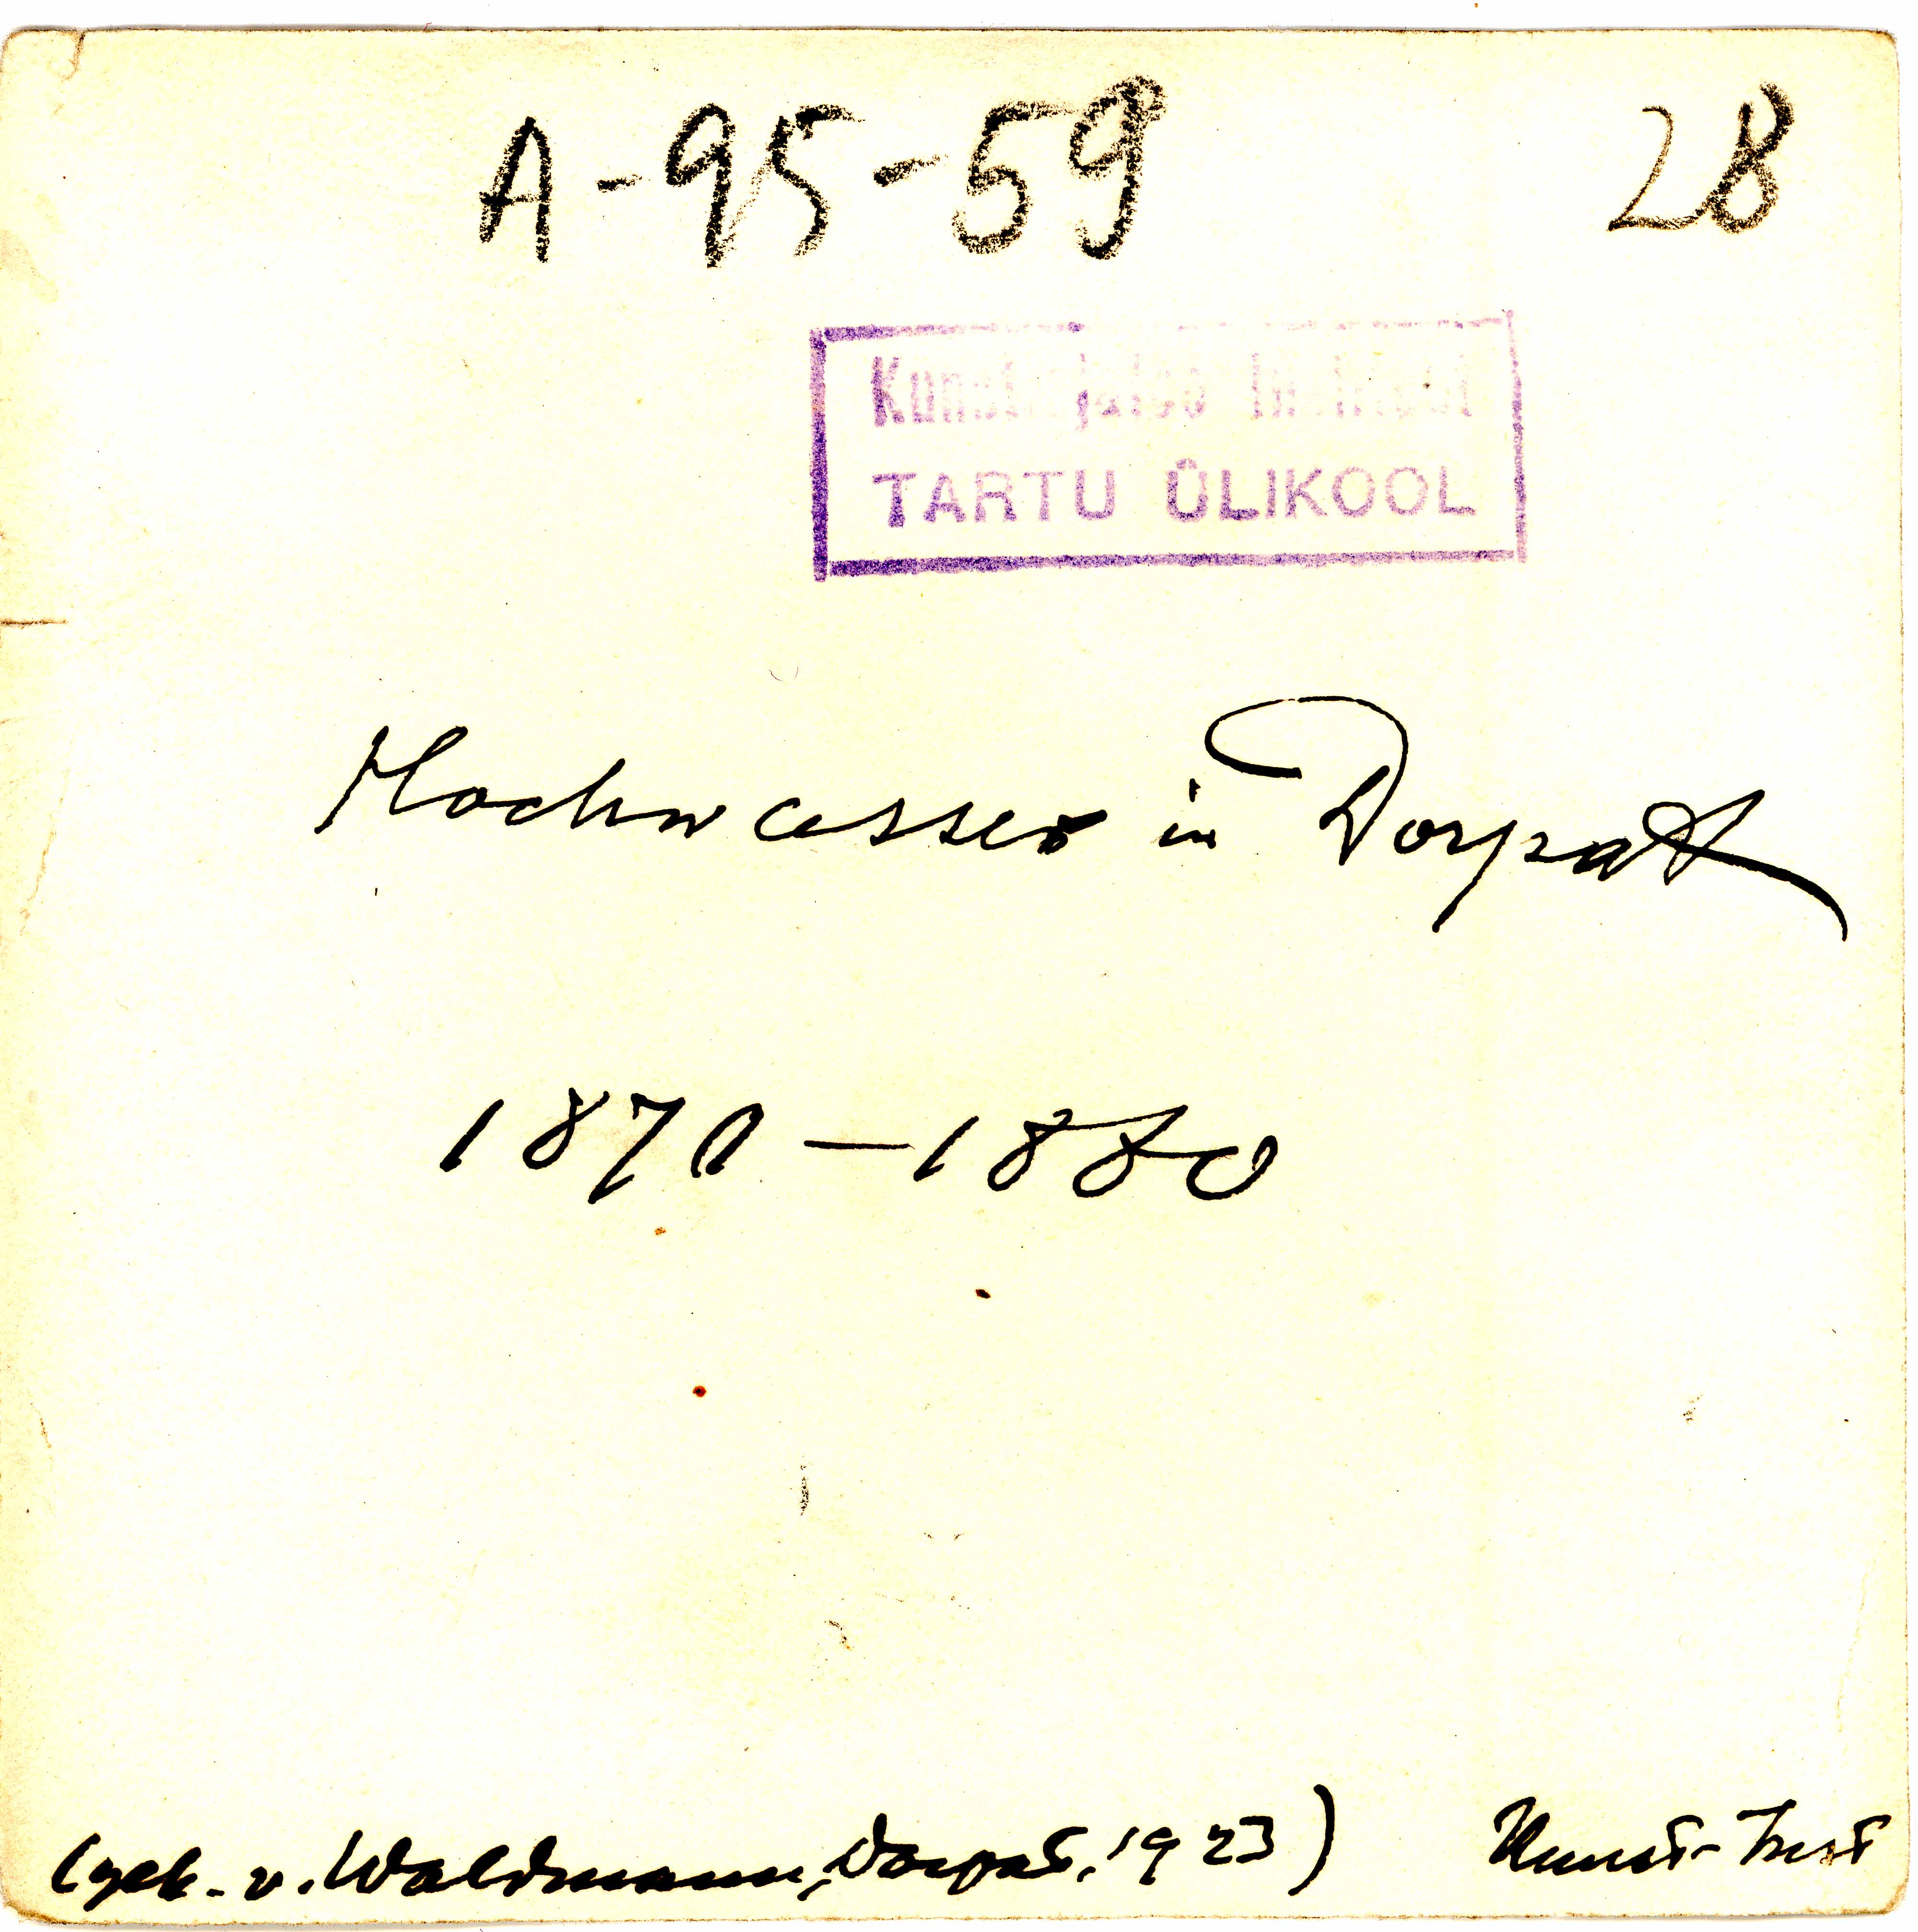 A-95-59 28
Kunstiajaloo Instituut
TARTU ÜLIKOOL
Hochwasser in Dorpat
1870-1880
(geb. v. Waldmann, Dorpat, 1923) Kunst-Inst